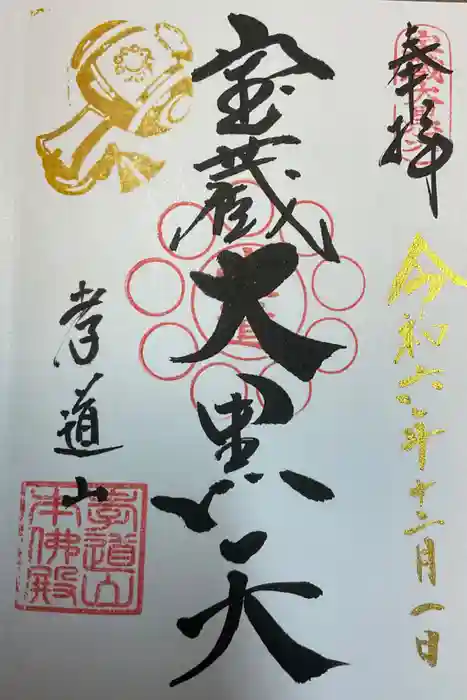 奉拝
令和六年十二月一日
宝蔵大黒天
孝道山
孝道山
本佛殿